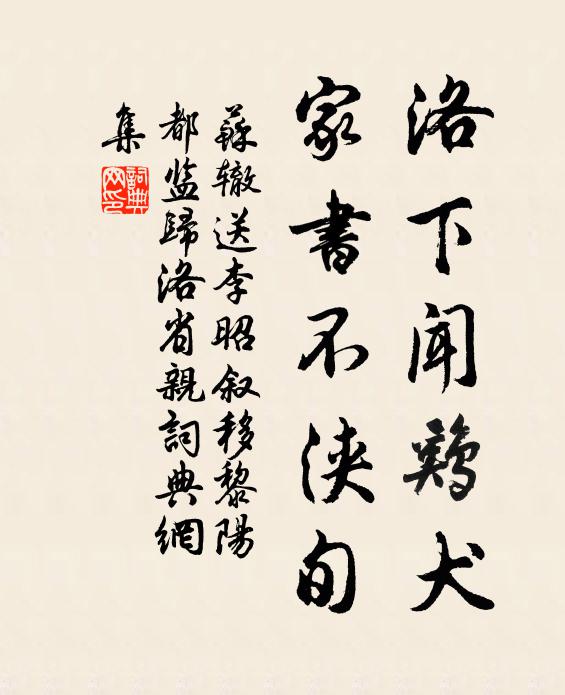 洛下闻鷄犬
家書不浹旬
蘇辙送李昭叙移黎陽
都监歸洛省親詞典網
集
詞典网印